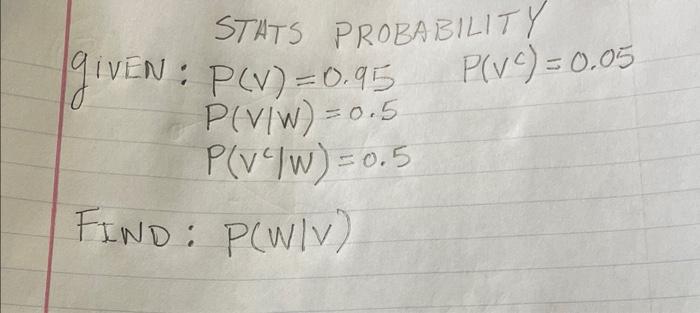 STATS PROBABILITY
given: P(V)=0.95 P(Vᶜ)=0.05
P(V|W)=0.5
P(Vᶜ|W)=0.5
FIND: P(W|V)